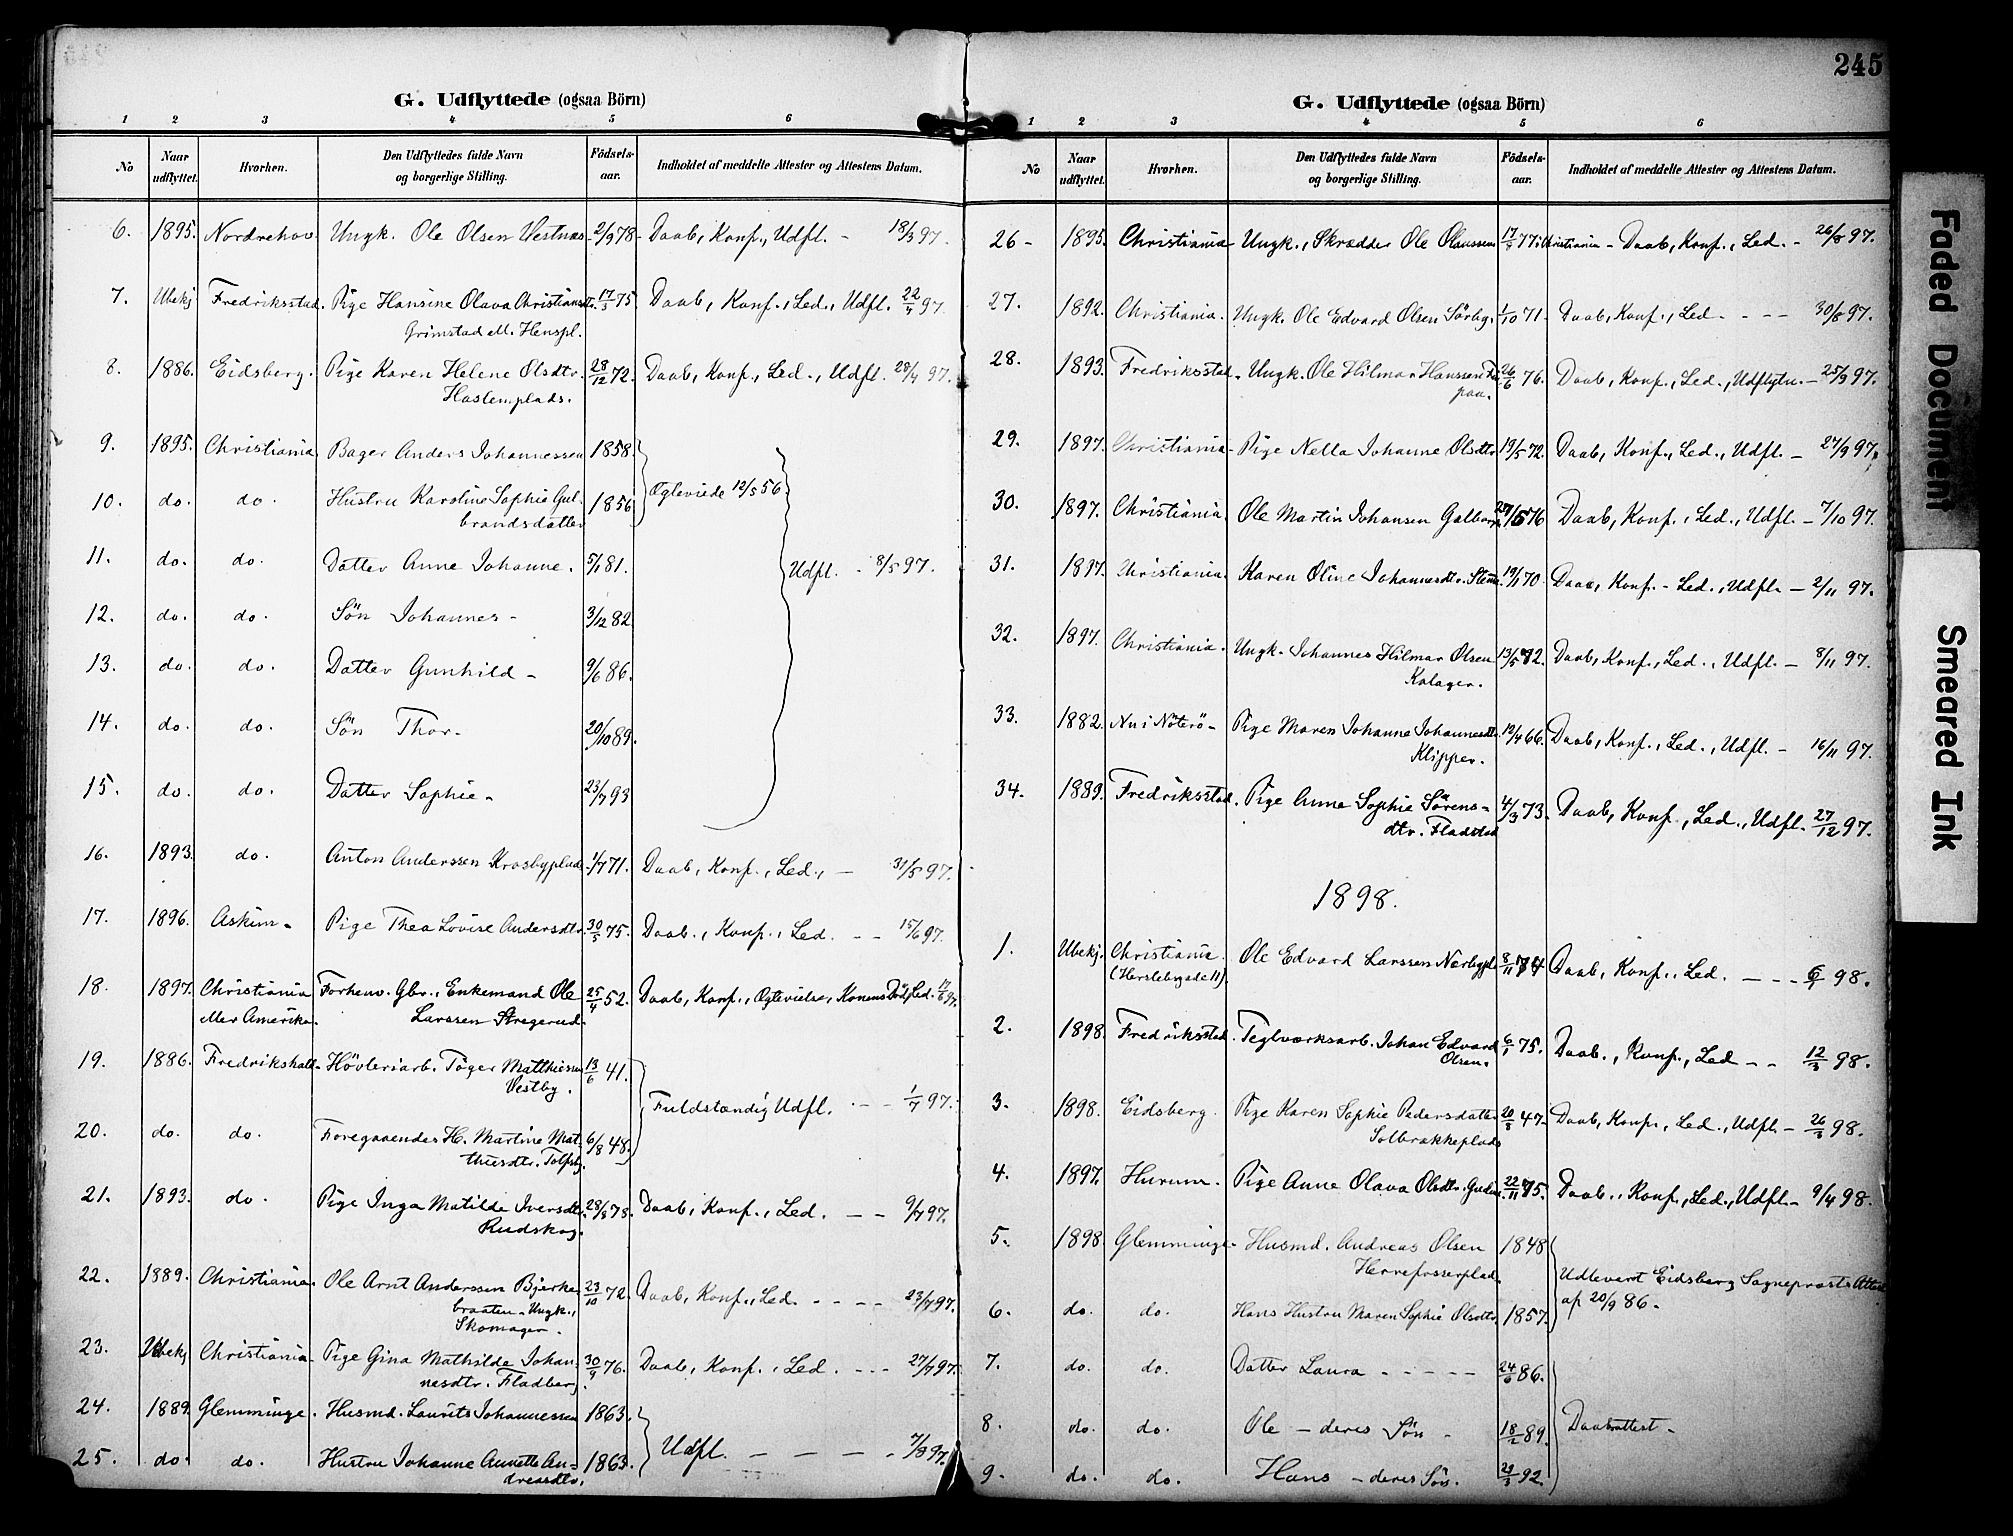 245
G. Udflyttede (ogsaa Börn)
1 2 3 4 5 6
No Naar udflyttet. Hvorhen. Den Udflyttedes fulde Navn og borgerlige Stilling. Födsels-aar. Indholdet af meddelte Attester og Attestens Datum.
6. 1895. Nordrehov Ungk. Ole Olsen Vestnæs 2/9 78 Daab, Konf., Udfl. - 18/3 97.
7. Ubekj Fredriksstad. Pige Hansine Olava Christiansdtr. 17/3 75. Daab, Konf., Led., Udfl. 22/4 97.
Grimstad ell. Henspl.
8. 1886. Eidsberg. Pige Karen Helene Olsdtr. 28/12 72. Daab, Konf., Led., Udfl. 28/4 97.
Haslemplads.
9. 1895. Christiania Bager Anders Johannessen 1858.
10. do. do. Hustru Karoline Sophie Gul- 1856 Ogteviede 12/5 56
brandsdatter
11. do. do. Datter Anne Johanne. 5/1 81. Udfl. - 8/5 97.
12. do. do. Sön Johannes - 3/12 82
13. do. do. Datter Gunhild - 9/6 86.
14. do. do. Sön Thor - 20/10 89.
15. do. do. Datter Sophie - 23/7 93
16. 1893. do. Anton Anderssen Krosbyplads 1/7 71. Daab, Konf., Led., - 31/5 97.
17. 1896. Askim - Pige Thea Lovise Andersdtr. 30/5 75. Daab., Konf., Led. - - 15/6 97.
18. 1897. Christiania Forhenv. Gbr., Enkemand Ole 25/4 52. Daab, Konf., Ogtevielse, Konens Död, Led. 17/6 97.
eller Amerika. Larssen Stregerud.
19. 1886. Fredrikshald - Hövleriarb. Töger Matthiesen 13/6 41.
Vestby.
Fuldstændig Udfl. - - 1/7 97.
20. do. do. Foregaaendes H. Martine Mat- 6/8 48.
thiesdtr. Tolfsby.
21. 1893. do. Pige Inga Matilde Iversdtr. 28/8 78. Daab, Konf., Led. - - 9/7 97.
Rudskog.
22. 1889. Christiania. Ole Arnt Anderssen Bjerke- 23/10 72. Daab, Konf., Led. - - - - 23/7 97.
braaten - Ungk.,
Skomager.
23. Ubekj Christiania - Pige Gina Mathilde Johan- 30/9 76. Daab, Konf., Led. - - - 27/7 97.
nesdtr. Fladberg.
24. 1889. Glemminge. Husmd. Laurits Johannessen 1863.
Udfl. - - - - 7/8 97.
25. do. do. Hustru Johanne Annette An- 1863.
dreasdtr.
G. Udflyttede (ogsaa Börn)
1 2 3 4 5 6
No Naar udflyttet. Hvorhen. Den Udflyttedes fulde Navn og borgerlige Stilling. Födsels-aar. Indholdet af meddelte Attester og Attestens Datum.
26 - 1895. Christiania Ungk., Skrædder Ole Olaussen 17/7 77. Christiania - Daab, Konf., Led. - 26/8 97.
27. 1892. Christiania. Ungk. Ole Edvard Olsen Sörby. 1/10 71. Daab, Konf., Led. - - - 30/8 97.
28. 1893. Fredriksstad. Ungk. Ole Hilmar Hanssen 26/6 76. Daab, Konf., Led., Udflytn. - 25/9 97.
29. 1897. Christiania - Pige Nella Johanne Olsdtr. 19/5 72. Daab, Konf., Led., Udfl. - 27/9 97.
30. 1897. Christiania. Ole Martin Johansen 76 Daab, Konf., Led., Udfl. - 7/10 97.
31. 1897. Christiania. Karen Oline Johannesdtr. 19/1 70. Daab, Konf. - Led., Udfl. - 2/11 97.
32. 1897. Christiania. Ungk. Johannes Hilmar Olsen 13/5 72. Daab, Konf., Led., Udfl. - 8/11 97.
Kalager.
33. 1882. Nu i Nöterö - Pige Maren Johanne Johannesdtr. 12/4 66. Daab, Konf., Led., Udfl. - 16/11 97.
Klipper.
34. 1889. Fredriksstad. Pige Anna Sophie Sörens- 4/3 73. Daab, Konf., Led., Udfl. 27/12 97.
dtr. Fladstad
1898.
1. Ubekj. Christiania. Ole Edvard Larssen Nærbypl. 8/11 74 Daab, Konf., Led. - - - 6/1 98.
(Herslebsgade 11).
2. 1898. Fredriksstad. Teglværksarb. Johan Edvard 6/1 75. Daab., Konf., Led - - 12/3 98.
Olsen.
3. 1898. Eidsberg. Pige Karen Sophie Pedersdatter 20/8 47. Daab, Konf., Led., Udfl. - 26/3 98.
Solbrækkeplads
4. 1897. Hurum. Pige Anne Olava Olsdtr. 22/11 75. Daab., Konf., Led., Udfl. - 9/4 98.
5. 1898. Glemminge - Husmd. Andreas Olsen 1848
Herrefosserplad. Udlevert Eidsberg Sognepræsts Attest
6. do. do. Hans Hustru Maren Sophie Olsdtr. 1857. af 20/9 86.
7. do. do. Datter Laura - - - - - 24/6 86.
8. do. do. Ole - deres Sön - 18/2 89. Daabsattest.
9. do. do. Hans - deres Sön. 29/3 92.
Faded Document
Smeared Ink